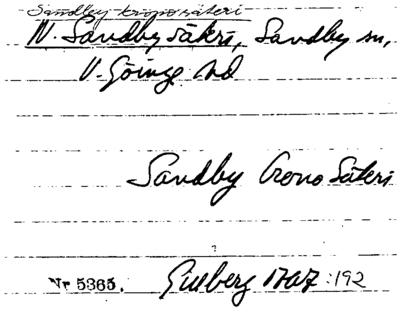 Sandby krono säteri
N. Sandby säteri, Sandby sn,
V. Göinge hd
Sandby Crono Säteri
Nr 5365. Gillberg 1767:192